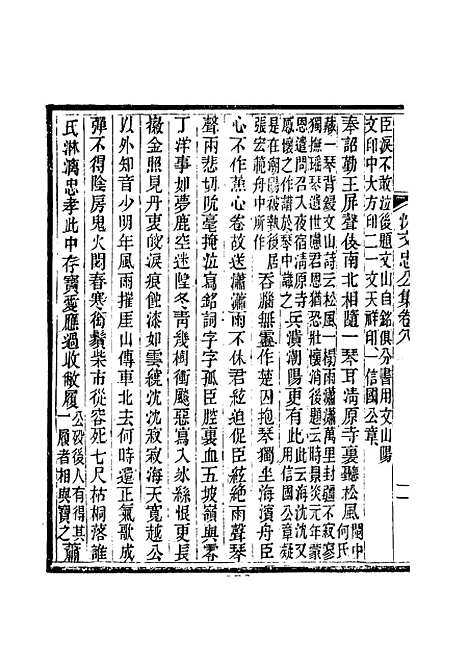 沈文忠公集卷八
臣淚不敢泣後題文山自銘俱分書用文山陽
文印中大方印二一文天祥印一信國公章
奉詔勤王屏聲伎南北相隨一琴耳清原寺裏聽松風閩中何氏
藏一琴背鐫文山詩云松風一榻雨瀟瀟萬里封疆不寂寥
獨撫瑤琴遺世慮君恩猶恐壯懷消後題云時景炎元年蒙
恩遣問召入夜宿清原寺感
懷之作譜於琴中識之
兵潰潮陽更有海沈沈又
用信國公章疑
是在潮陽被執後居
張宏範舟中所作
吞腦無靈楚囚抱琴獨坐海濱舟臣
心不作焦心卷故送瀟瀟雨不休君絃迫促臣絃絕雨聲琴
聲兩悲切吮毫掩泣寫銘詞字字孤臣腔裏血五坡嶺與零
丁洋事如夢鹿空迷隍冬青幾樹衝飈惡寫入冰絲恨更長
撤金照見丹衷皎淚痕蝕漆如雲繞沈沈寂寂海天寬越公
以外知音少明年風雨摧崖山傳車北去何時還正氣歌成
彈不得陰房鬼火閟春寒衔鬚柴市從容死七尺枯桐落誰
氏淋漓忠孝此中存寶愛應過收敝履公歿後人有得其一履者相與寶之蕭